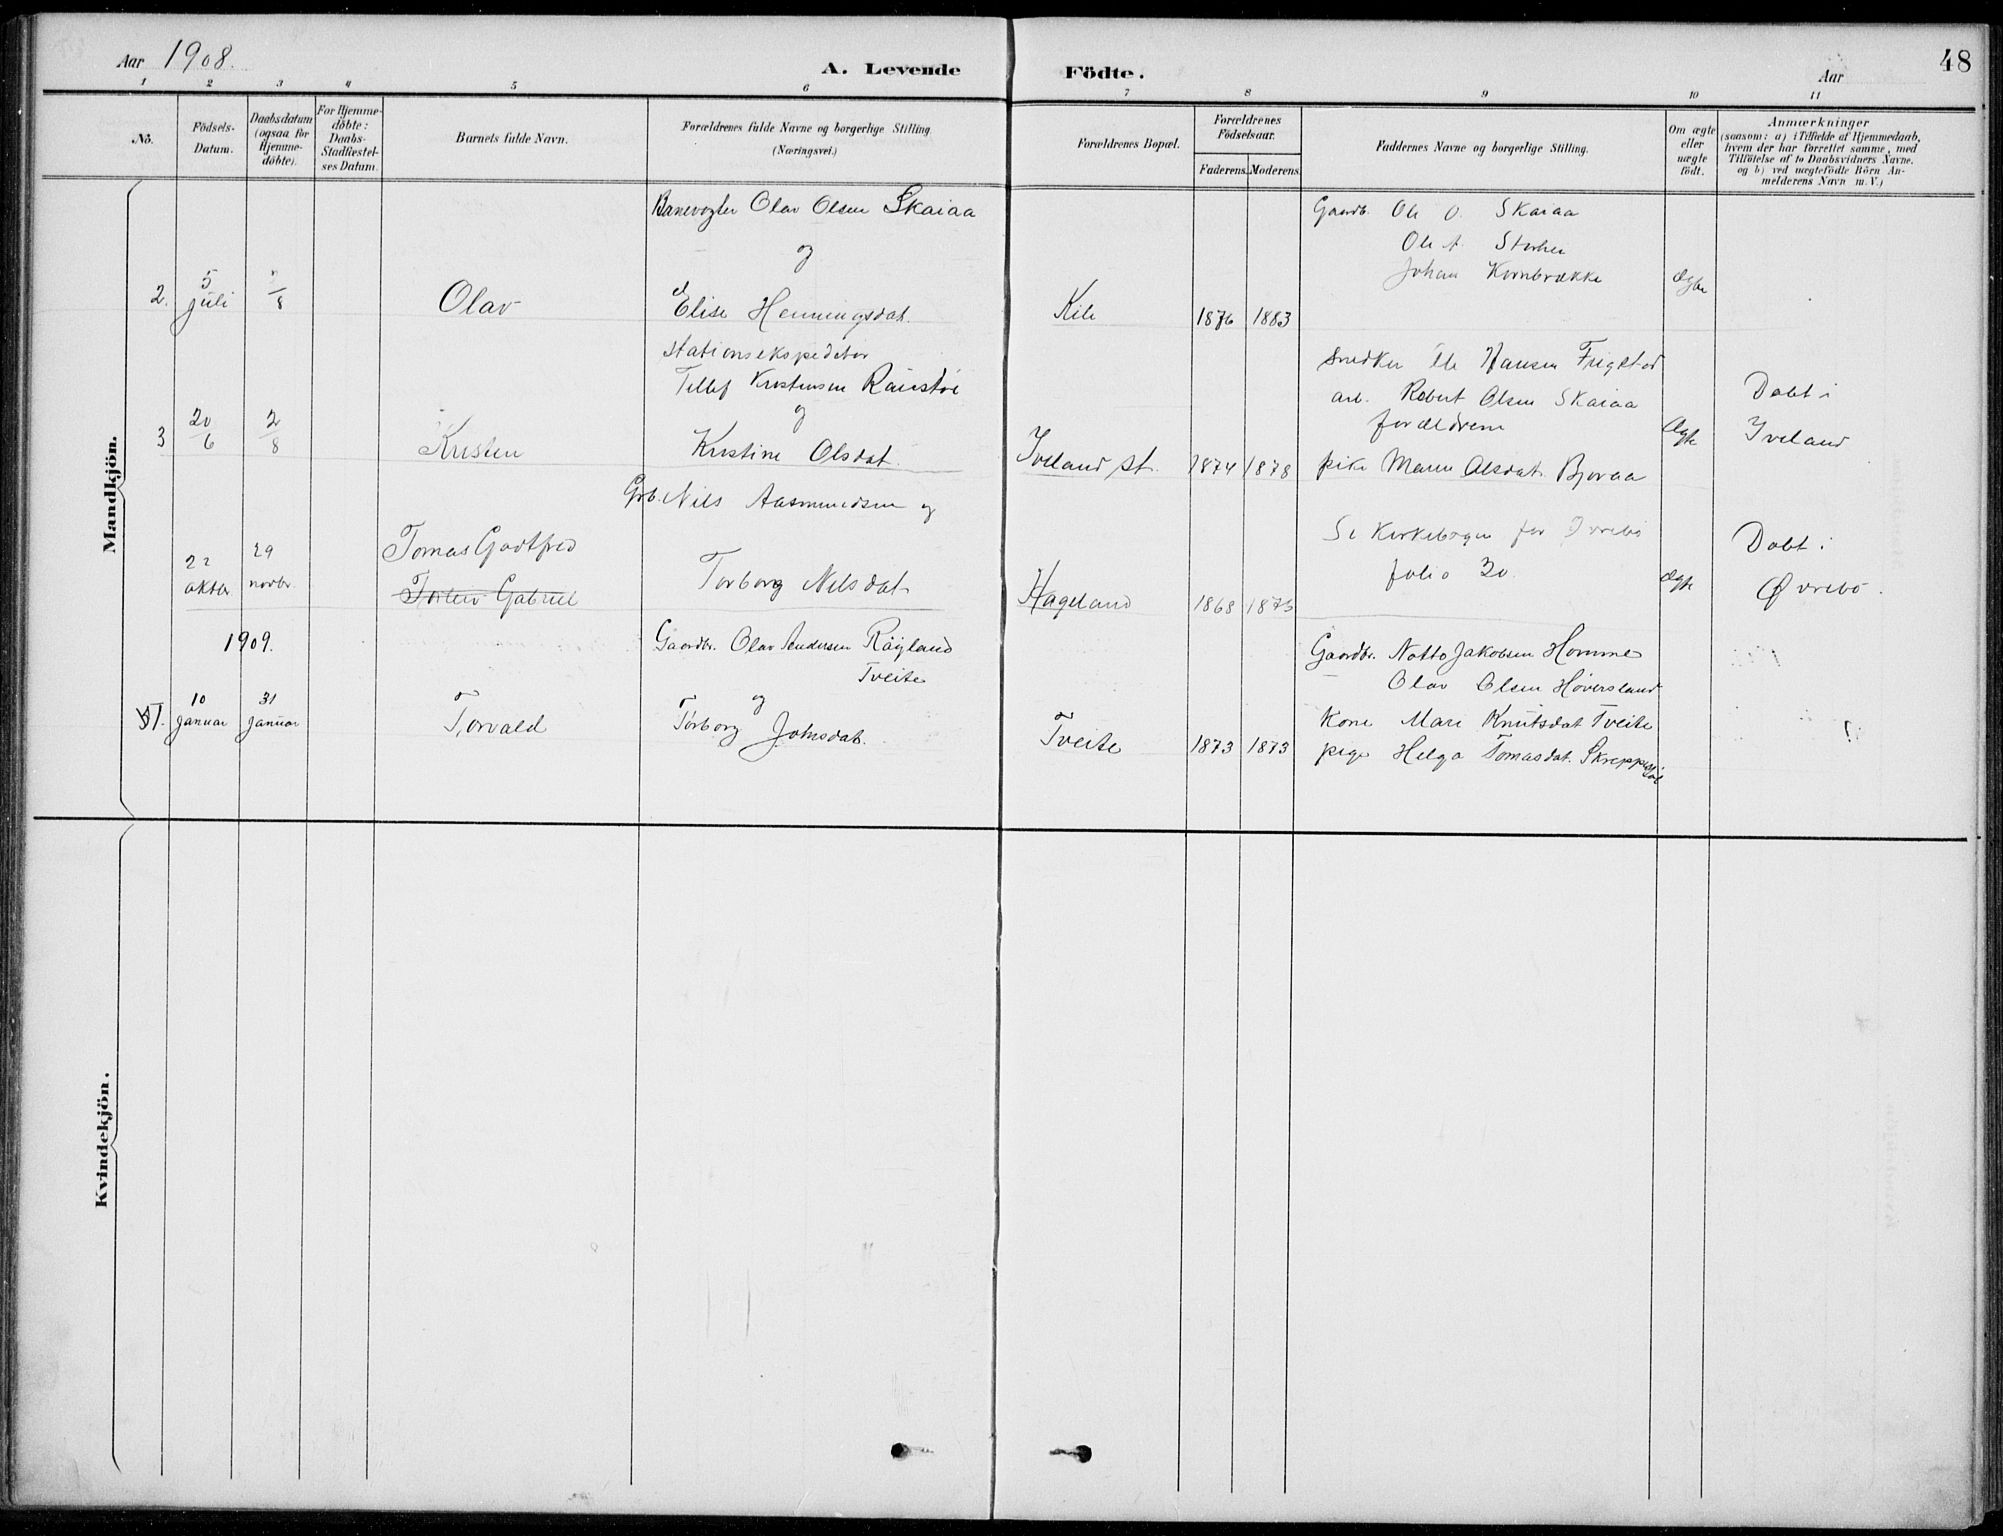 Aar 1908.
A. Levende Födte.
Aar
48
1 2 3 4 5 6 7 8 9 10 11
No.
Födsels-Datum.
Daabsdatum (ogsaa for Hjemme-döbte).
For Hjemme-döbte: Daabs-Stadfæstel-ses Datum.
Barnets fulde Navn.
Forældrenes fulde Navne og borgerlige Stilling. (Næringsvei.)
Forældrenes Bopæl.
Forældrenes Födselsaar.
Faderens. Moderens.
Faddernes Navne og borgerlige Stilling.
Om ægte eller uægte födt.
Anmærkninger
(saasom: a) i Tilfælde af Hjemmedaab,
hvem der har forrettet samme, med
Tilföielse af to Daabsvidners Navne.
og b) ved uægtefödte Börn An-
melderens Navn m. V.)
Mandkjön.
Banevogter Olav Olsen Skaiaa
og
2. 5 juli /8 Olav Elise Henningsdat. Kile 1876 1883
Gaardb. Ole O. Skaiaa
Ole A.
Johan Kornbrække
Ægte
Stationsekspeditør
Tellef Kristensen
og
3 20/6 2/8 Kristen Kristine Olsdat. Iveland st. 1874 1878
Snedker Ole Hansen Frigstad
arb. Robert Olsen Skaiaa
forældrene
pike Maren Olsdat. Bjoraa
Ægte
Døbt i
Iveland
Grb. Nils Aasmundsen og
22 oktbr 29 novbr. Tomas Godtfred
Gabriel
Torborg Nilsdat. Hageland 1868 1875
Se Kirkebogen for Øvrebø
folio 30.
Ægte
Døbt i
Øvrebø.
1909.
Gaardbr. Olav Andersen Røiland
Tveite
og
1. 10 januar 31 januar Torvald Torborg Johnsdat. Tveite 1873 1873
Gaardbr. Notto Jakobsen Homme
Olav Olsen Høversland
Kone Mari Knutsdat Tveite
pige Helga Tomasdat.
Kvindekjön.